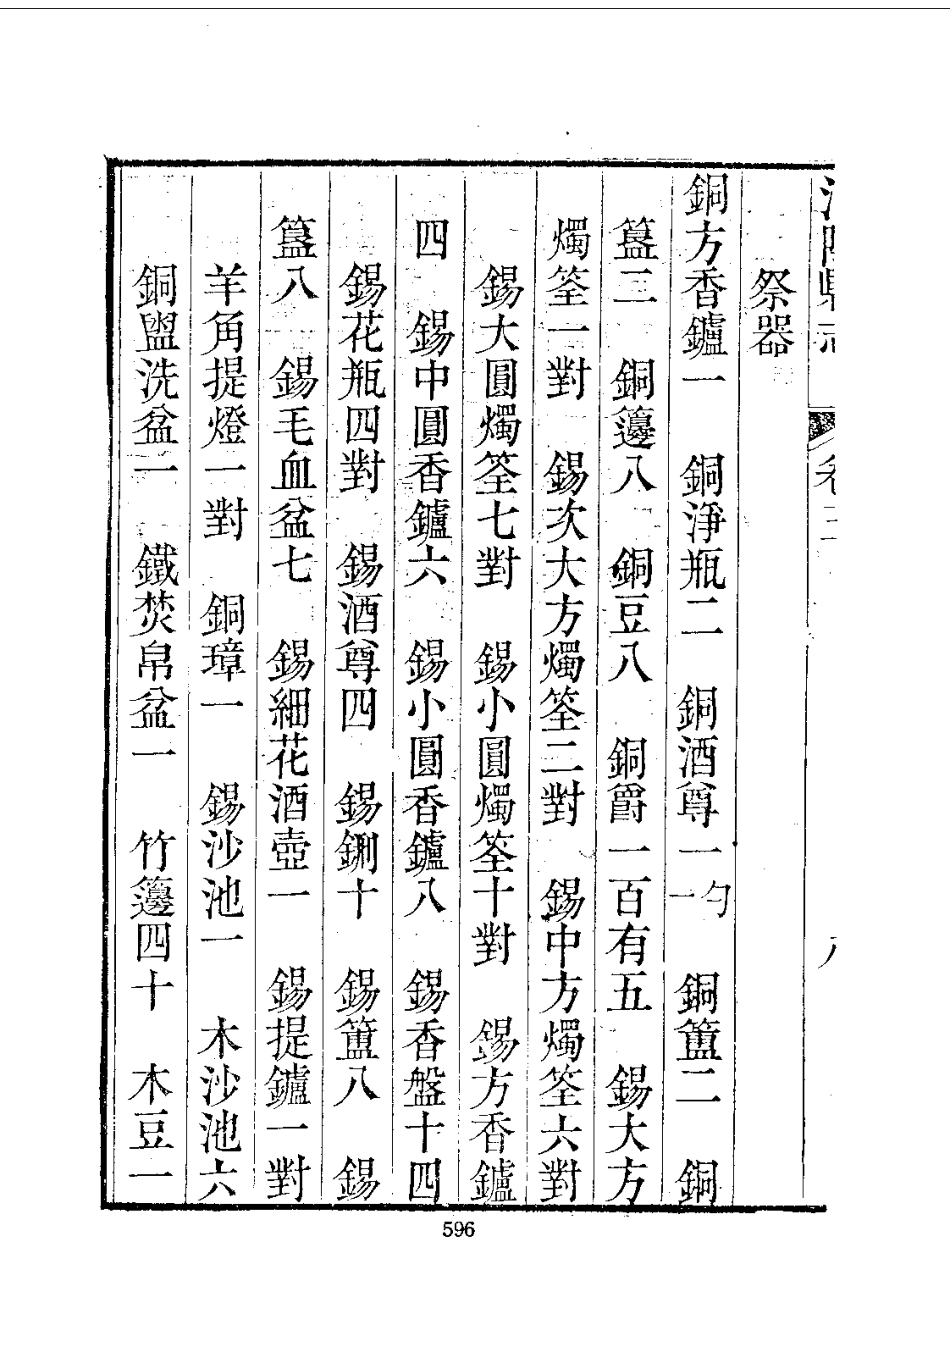 祭器
銅方香鑪一　銅淨瓶二　銅酒尊一勺一　銅簠二　銅
簋三　銅籩八　銅豆八　銅爵一百有五　錫大方
燭筌一對　錫次大方燭筌二對　錫中方燭筌六對
錫大圓燭筌七對　錫小圓燭筌十對　錫方香鑪
四　錫中圓香鑪六　錫小圓香鑪八　錫香盤十四
錫花瓶四對　錫酒尊四　錫鉶十　錫簠八　錫
簋八　錫毛血盆七　錫細花酒壺一　錫提鑪一對
羊角提燈一對　銅璋一　錫沙池一　木沙池六
銅盥洗盆一　鐵焚帛盆一　竹籩四十　木豆一
596